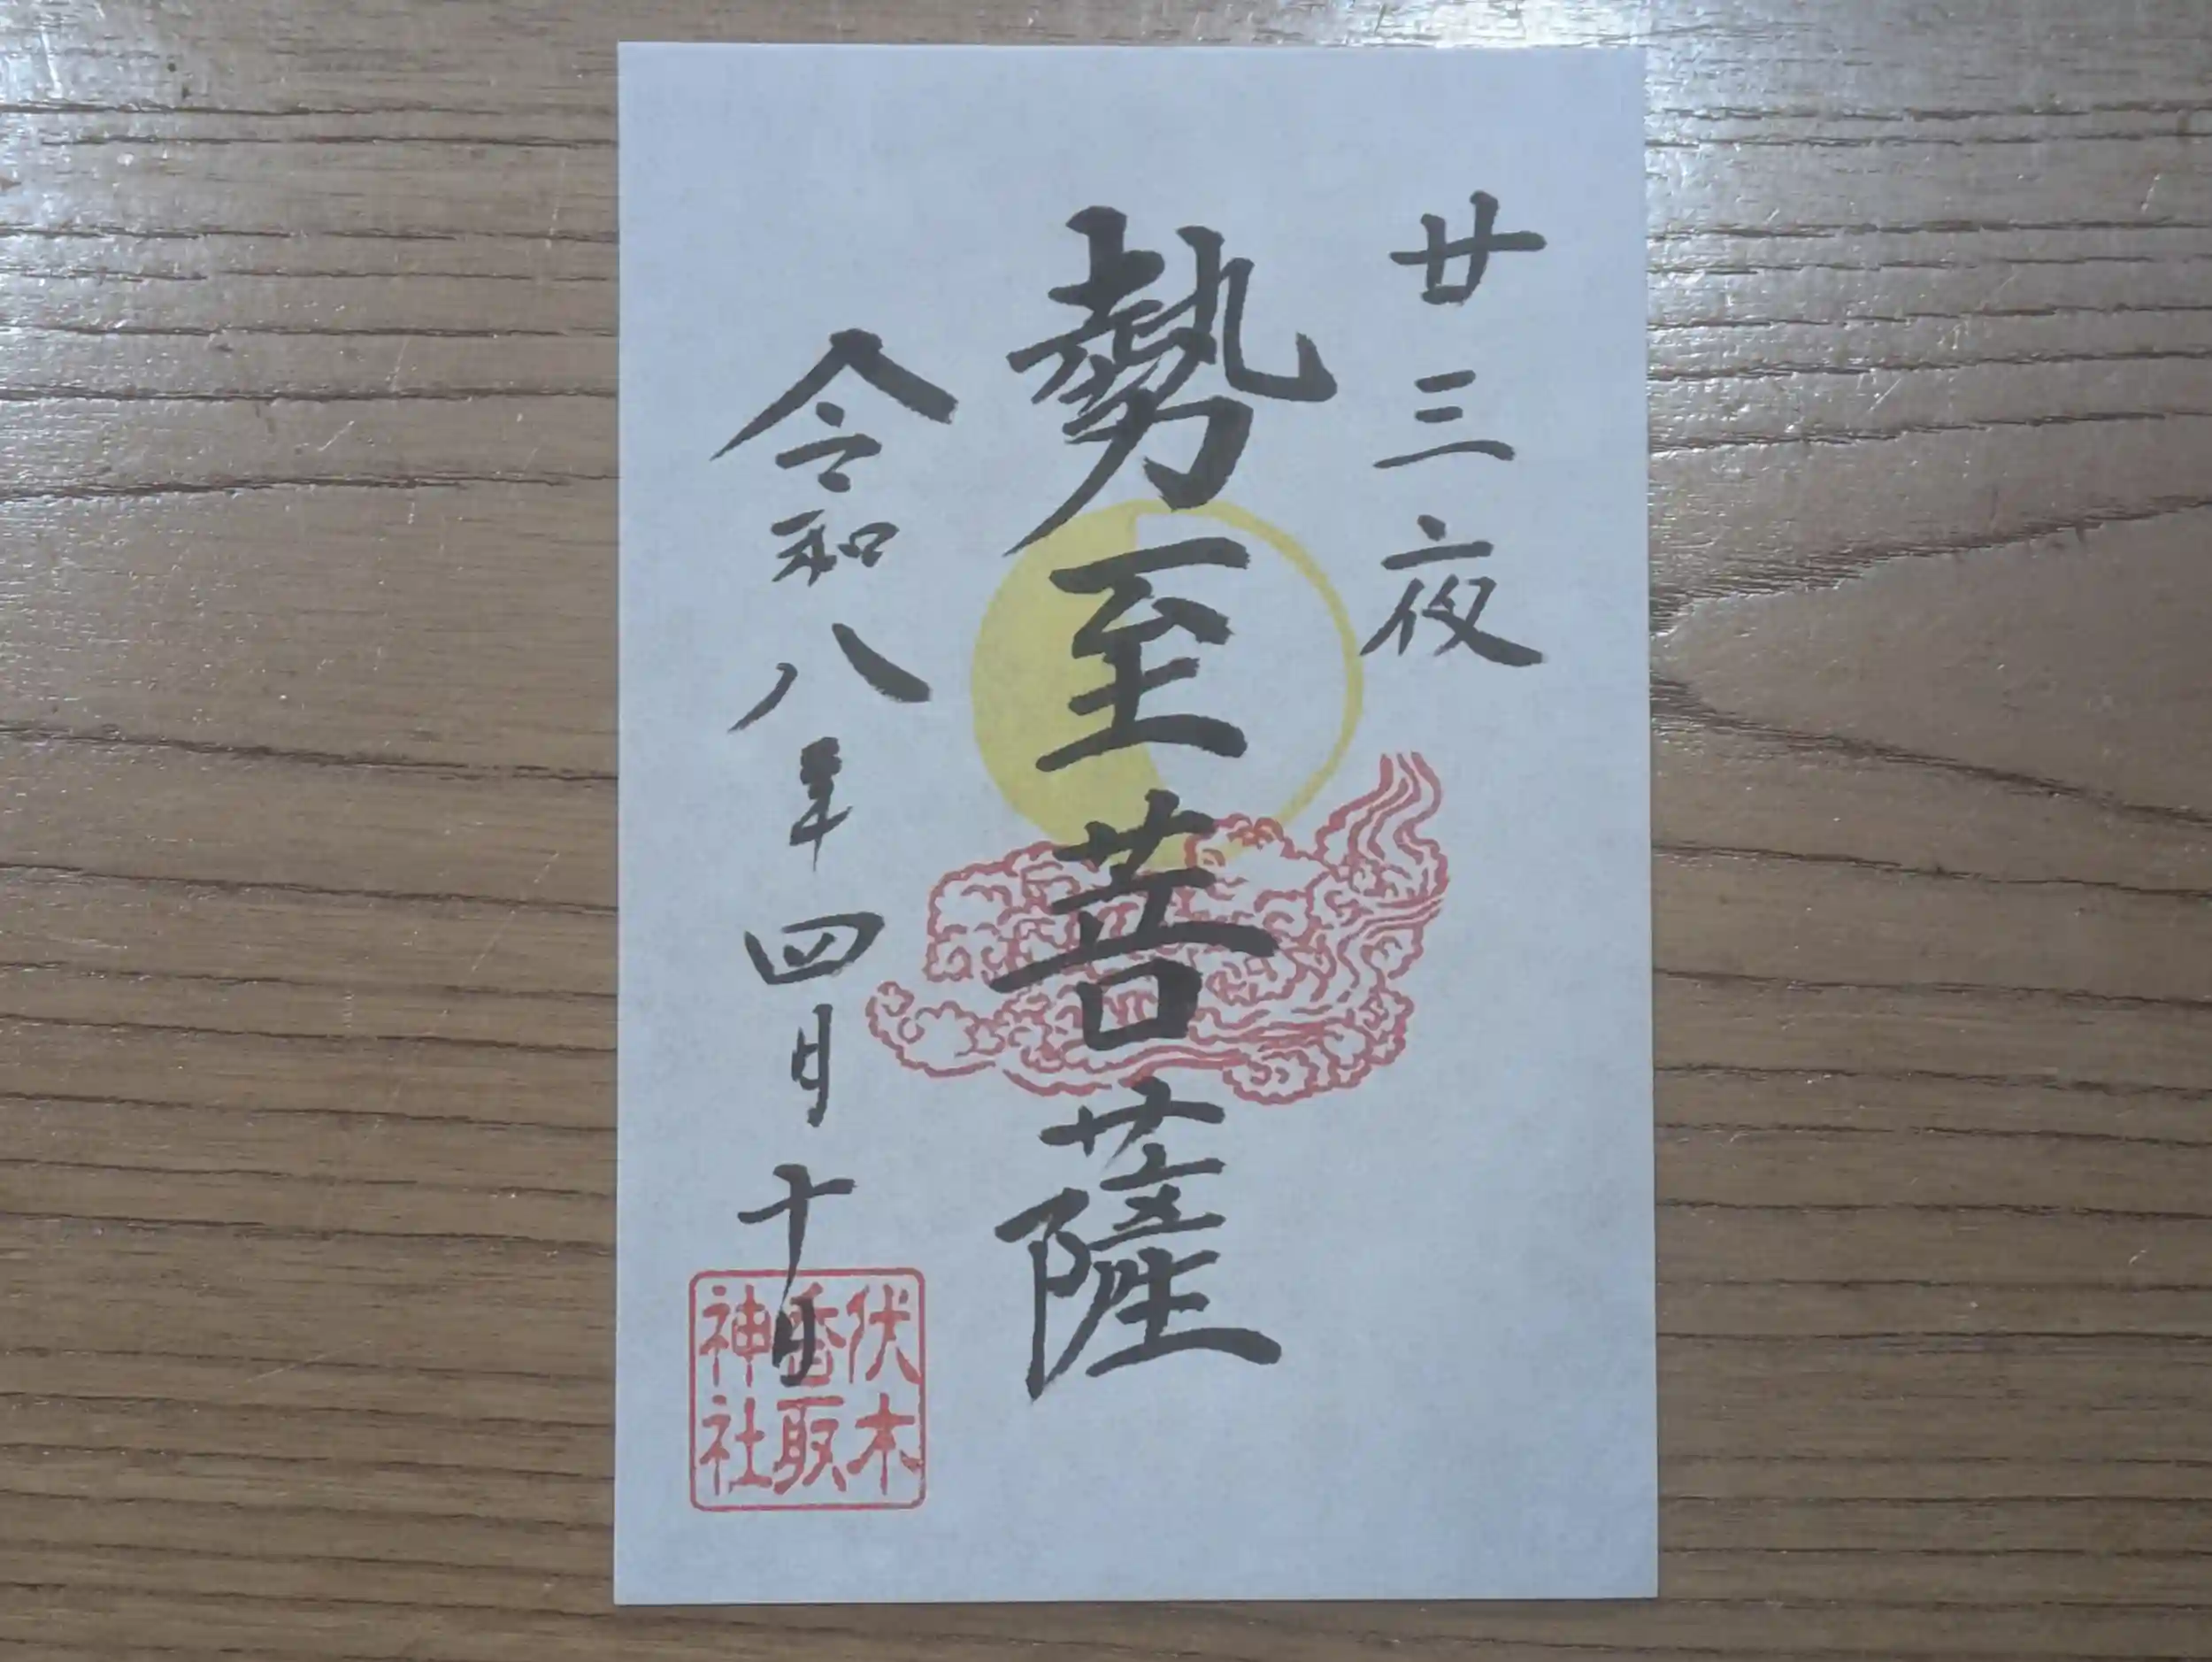 廿三夜
勢至菩薩
令和八年四月十日
伏木
香取
神社